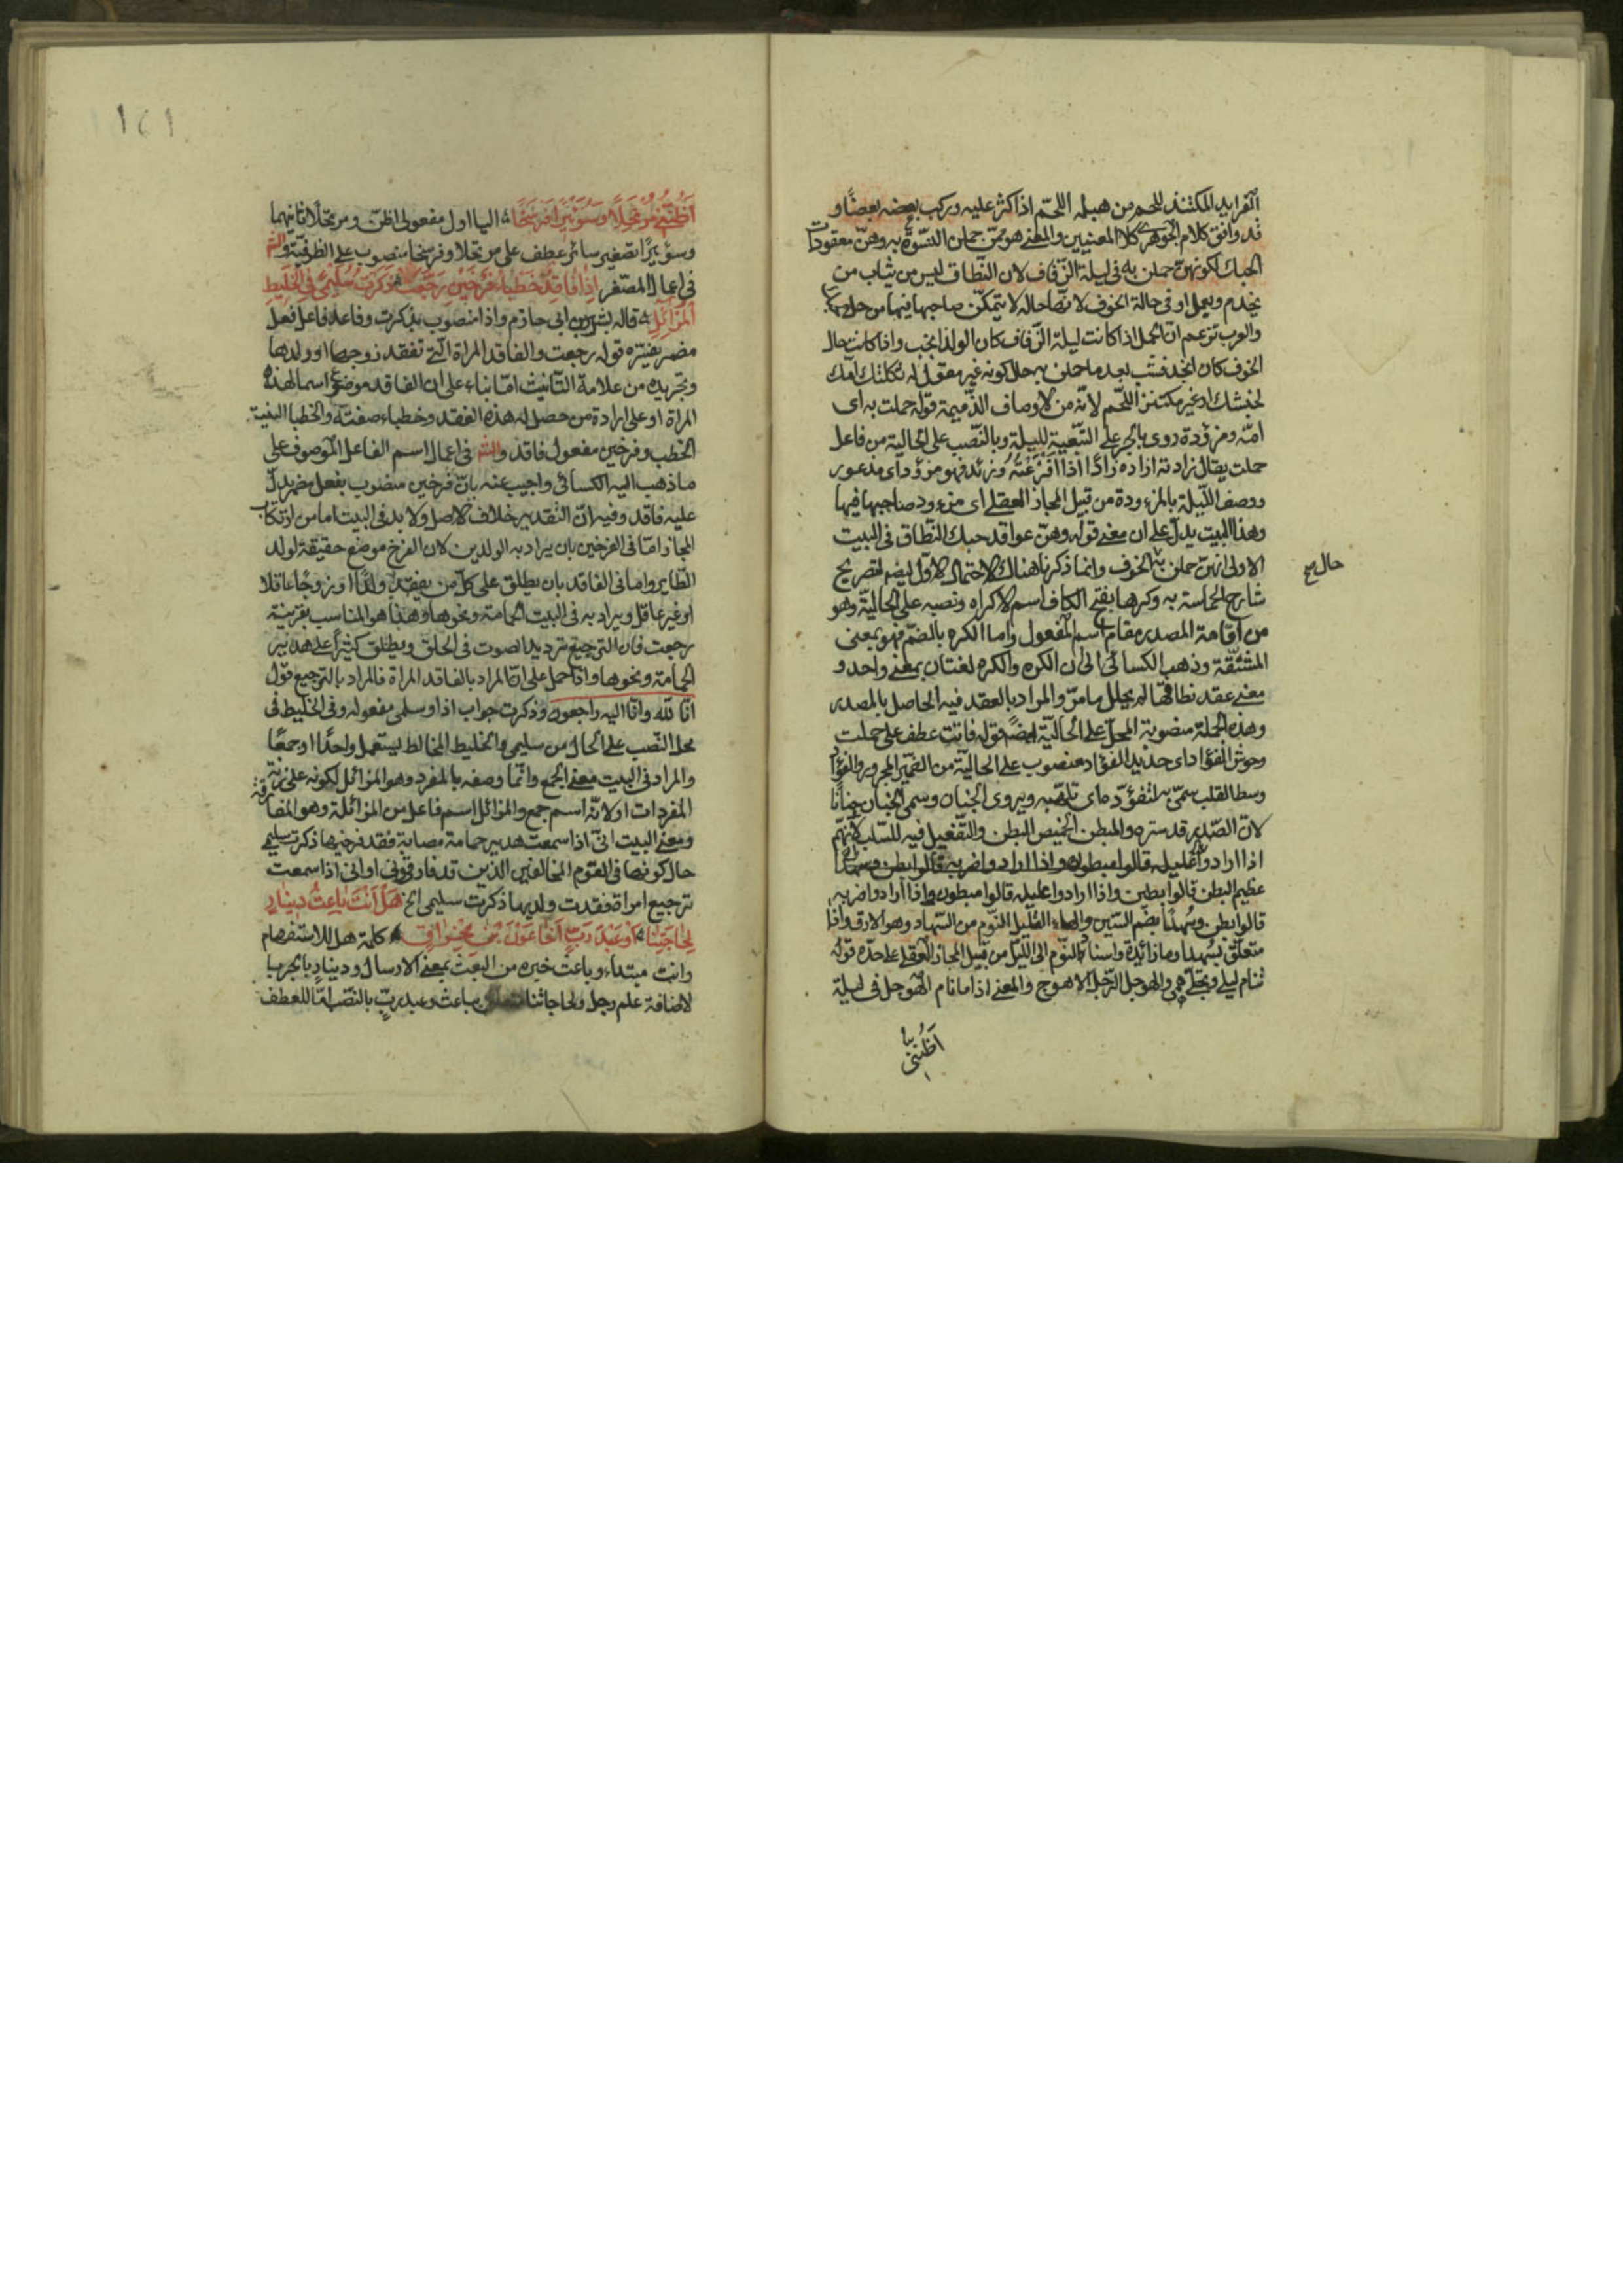 الفرايد المكتنذ للحم من هبله اللحم اذا كثر عليه وركب بعضه بعضًا و
قد وافق كلام الجوهري كلا المعنيين والمعنى هو ممّن حملن النسّوة به وهنّ معقودات
الحبك لكونهنّ حملن به فى ليلة الزّفاف لان النّطاق ليس من ثياب من
يخدم ويعمل او فى حالة الخوف لانّها حالة لا يتمكّن صاحبها فيها من حل
والعرب تزعم ان الحمل اذا كانت ليلة الزّفاف كان الولد انجب واذا كانت حال
الخوف كان انجد فشبّ بعد ما حملن به حال كونه غير مقول له ثكلتك امّك
لخبثك او غير مكتنز اللّحم لانّه من الاوصاف الذّميمة قوله حملت به اى
امّه ومزؤدة روى بالجر على التّبعيّة لليلة وبالنّصب على الحالية من فاعل
حملت يقال زاد ته ازاده زادًا اذا افزعته وزئد فهو مزؤد اى مذعور
ووصف اللّيلة بالمزءودة من قبيل المجاز العقلى اى مزءود صاحبها فيها
وهذا البيت يدلّ على ان معنى قوله وهنّ عواقد حبك النّطاق فى البيت
الاول انهنّ حملن به الخوف وانما ذكرنا هناك الاحتمال الاول ايضم لتصريح
حال صح
شارح الحماسة به وكرها بفتح الكاف اسم الاكراه ونصبه على الحاليّة وهو
من اقامة المصدر مقام اسم المفعول واما الكره بالضمّ فهو بمعنى
المشقّة وذهب الكسائى الى ان الكره والكره لغتان بمعنى واحد و
معنى عقد نطاقها لم يحلل ما مرّ والمراد بالعقد فيه الحاصل بالمصدر
وهذه الجملة منصوبة المحلّ على الحاليّة ايضًا قوله فاتت عطف على حملت
وحوش الفؤاد اى حديد الفؤاد منصوب على الحاليّة من الضمير المجرور والفؤاد
وسط القلب سمّى به لتفؤّده اى تلهّبه ويروى الجنان وسمى الجنان جنانًا
لانّ الصّدر قد ستره والمبطن الخميص البطن والتّفعيل فيه للسّلب لانهّم
اذا ارادوا عليله قالوا مبطون واذا ارادوا ضربه قالوا ابطن وسهدا
عظيم البطن قالوا بطين واذا ارادوا عليله قالوا مبطون واذا ارادوا ضربه
قالوا ابطن وسُهدًا بضّم السّين والهاء القليل النّوم من السّهاد وهو الارق واذا
متعلّق بسُهدا وما زائدة واسناد النّوم الى اللّيل من قبيل المجاز العقلى على حدّه قوله
تنام ليلى وتجلّى همى والهوجل الرّجل الاهوج والمعنى اذا ما نام الهوجل فى ليلة
اظننى
١٢١
اظننى مرتحلًا وسؤيرًا فرسخًا اليا اول مفعولى اظنّ ومرتحلًا ثانيهما
وسؤيرًا تصغير سائر عطف على مرتحلا وفرسخا منصوب على الظرفيّة والثم
فى اعمال المصغر اذا فاقد خطباء فرخين رجّعت ذكرت سليمى فى الخليط
المزائل قاله بشر بن ابى حازم واذا منصوب بذكرت وفاعل فاعل فعل
مضمر يفسّره قوله رجعت والفاقد المراة الّتى تفقد زوجها او ولدها
وتجريده من علامة التّانيث امّا بناء على ان الفاقد موضوع اسما لهذه
المراة او على ارادة من حصل له هذه الفقد وخطباء صفته والخطبا البنية
الخطب وفرخين مفعول فاقد والشم فى اعمال اسم الفاعل الموصوف على
ما ذهب اليه الكسائى واجيب عنه بانّ فرخين منصوب بفعل مضمر يدلّ
عليه فاقد وفيه انّ التقدير خلاف الاصل ولا بد فى البيت اما من ارتكاب
المجاز امّا فى الفرخين بان يراد به الولدين لان الفرخ موضع حقيقة لولد
الطّاير واما فى الفاقد بان يطلق على كلّ من يفقد ولدًا او زوجًا عاقلا
او غير عاقل ويراد به فى البيت الحمامة ونحوها وهذا هو المناسب بقرينة
رجعت فان الترجيع ترديد الصوت فى الحلق ويطلق كثيرًا على هدير
الحمامة ونحوها وامّا حمل على انّ المراد بالفاقد المراة فالمراد بالترجيع قول
انّا للّه وانّا اليه راجعون وذكرت جواب اذا وسلمى مفعوله وفى الخليط فى
محل النّصب على الحال من سليمى والخليط المخالط يستعمل واحدًا او جمعًا
والمراد فى البيت معنى الجمع وانّما وصفه بالمفرد وهو المزائل لكونه على زنة
المفردات او لانّه اسم جمع والمزائل اسم فاعل من المزائلة وهو المفارقة
ومعنى البيت انّى اذا سمعت هدير حمامة مصابة فقد فرخيها ذكرت سليمى
حال كونها فى القوم المخالفين الذين قد فارقونى او انى اذا سمعت
ترجيع امراة فقدت ولديها ذكرت سليمى الخ هل انت باعث دينار
لحاجتنا او عبد ربّ اخا عون بن مخراق كلمة هل للاستفهام
وانت مبتداء وباعث خبره من البعث بمعنى الارسال ودينار بالجر با
لاضافة علم رجل ولحاجتنا متعلق بباعث وعبد ربّ بالنّصب امّا للعطف